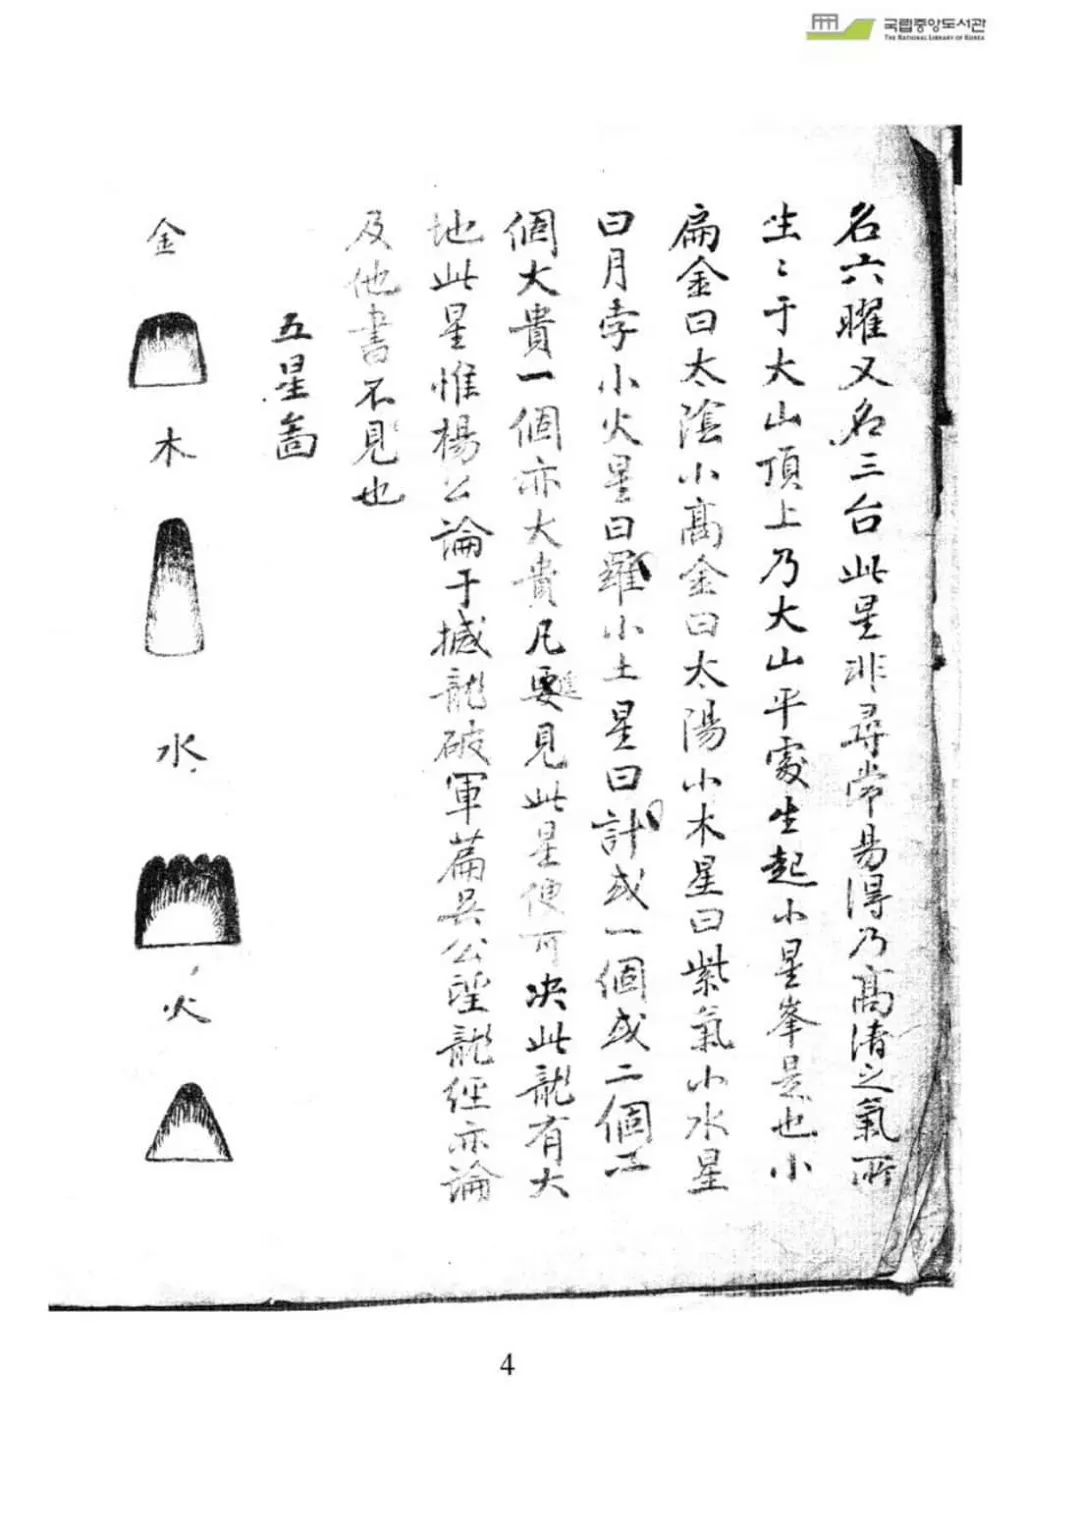 국립중앙도서관
THE NATIONAL LIBRARY OF KOREA
名六曜又名三台此星非尋常易得乃高清之氣所
生〻于大山頂上乃大山平處生起小星峯是也小
扁金曰太陰小高金曰太陽小木星曰紫氣小水星
曰月孛小火星曰羅小土星曰計或一個或二個三
個大貴一個亦大貴凡要見此星便可决此龍有大
地此星惟楊公論于撼龍破軍篇吳公望龍經亦論
及他書不見也
五星啚
金
木
水
火
4